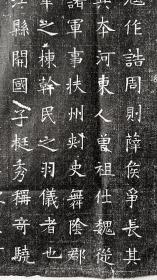 作誥周則薛侯爭長其
其本河東人曾祖仕魏從
諸軍事扶州刾史舞陰郡
軍之棟幹民之羽儀者也
江縣開國子挺秀稱奇驍